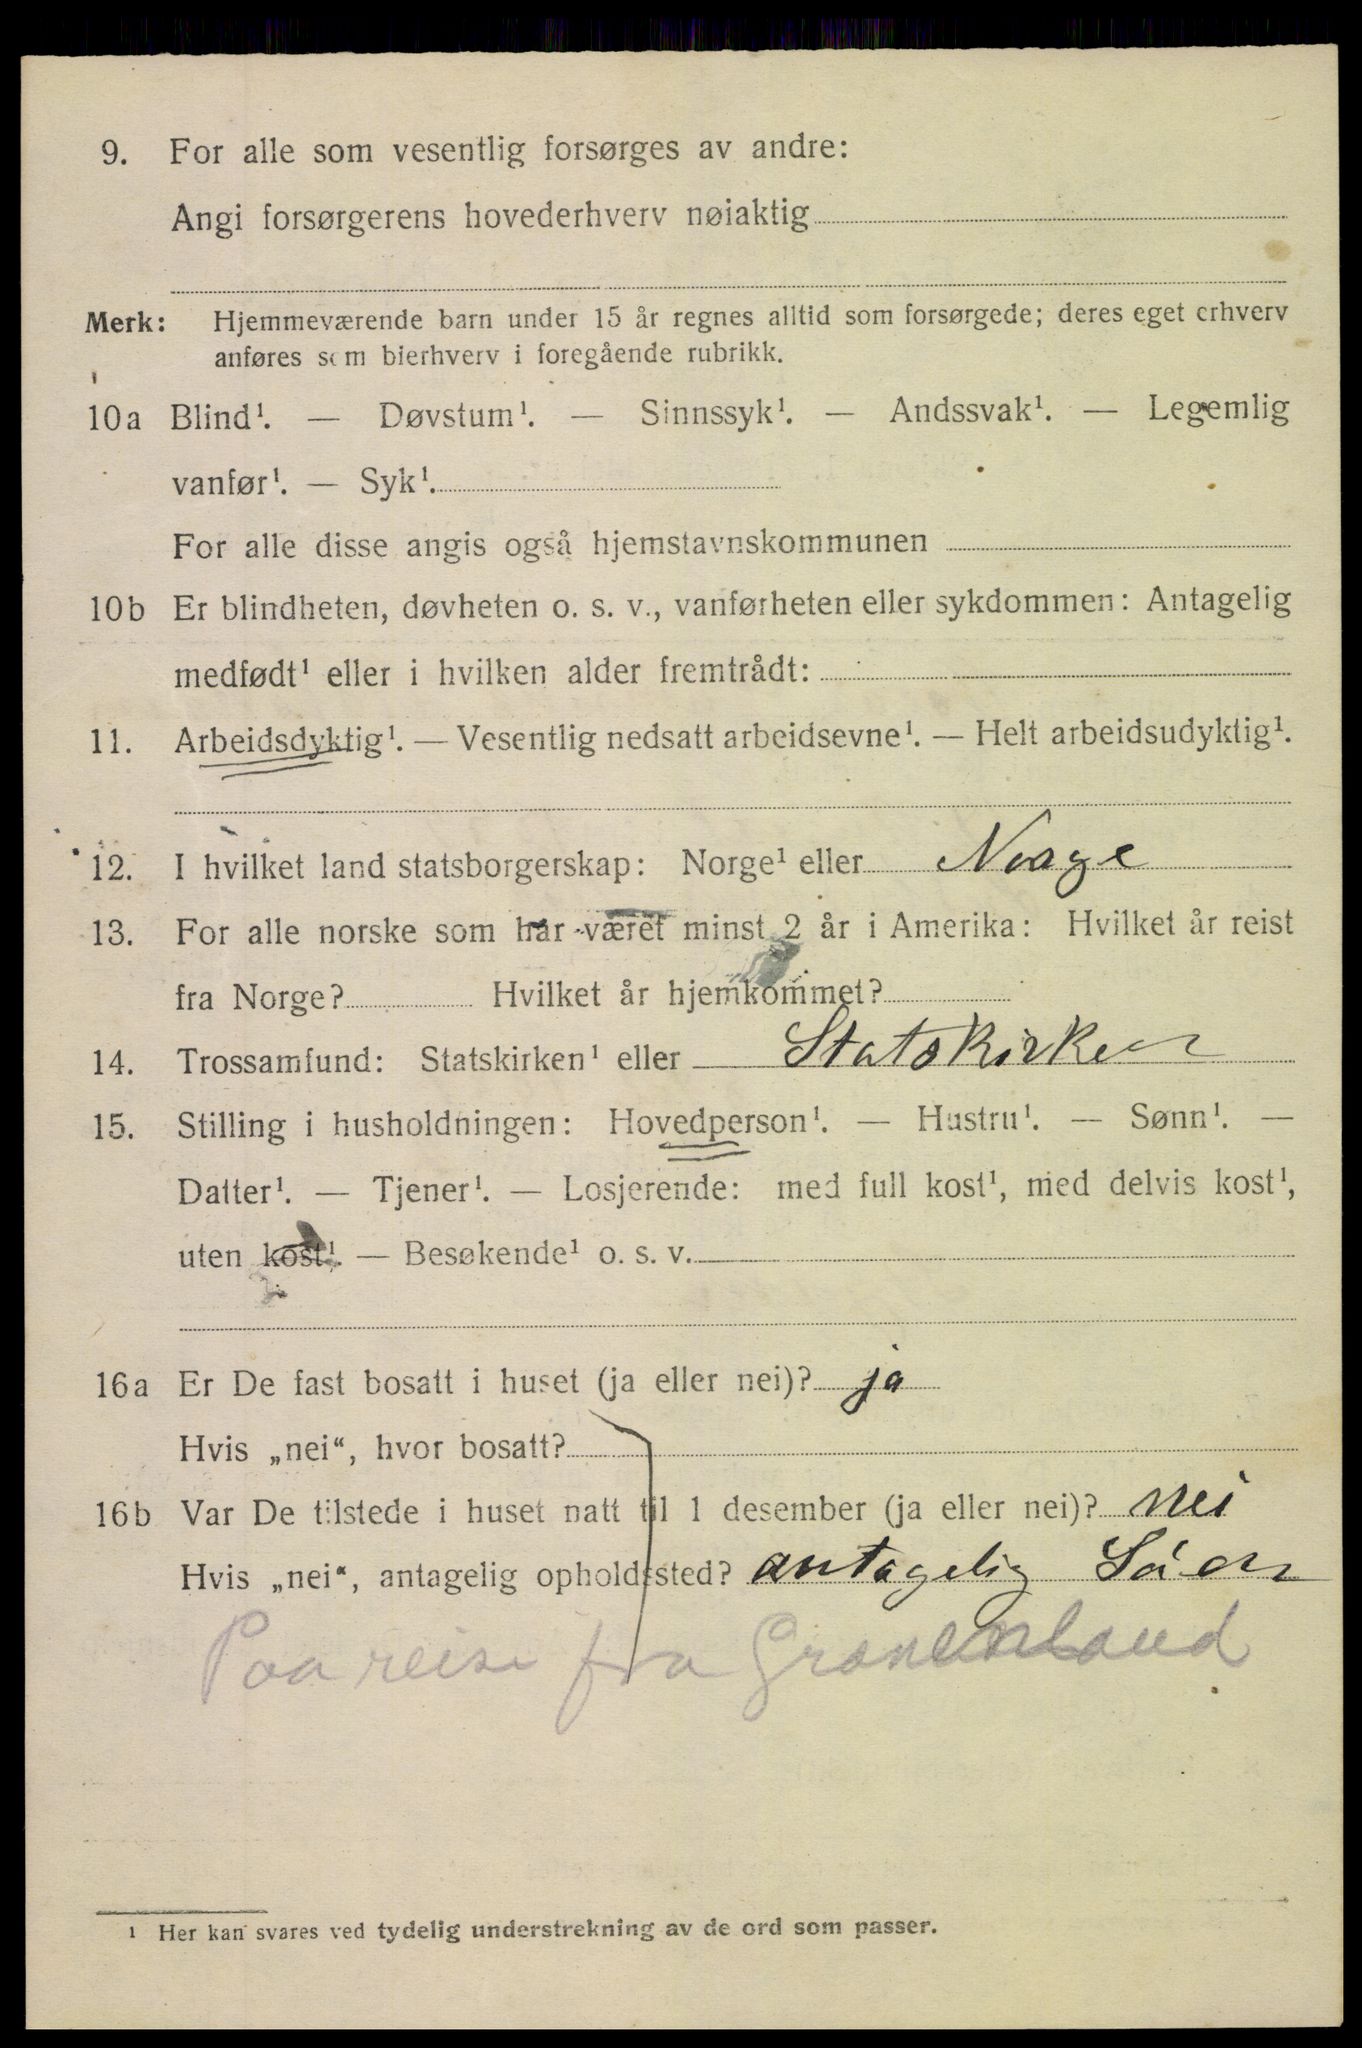 9. For alle som vesentlig forsørges av andre:
Angi forsørgerens hovederhverv nøiaktig
Merk: Hjemmeværende barn under 15 år regnes alltid som forsørgede; deres eget erhverv
anføres som bierhverv i foregående rubrikk.
10a Blind¹. — Døvstum¹. — Sinnssyk¹. — Andssvak¹. — Legemlig
vanfør¹. — Syk¹.
For alle disse angis også hjemstavnskommunen
10b Er blindheten, døvheten o. s. v., vanførheten eller sykdommen: Antagelig
medfødt¹ eller i hvilken alder fremtrådt:
11. Arbeidsdyktig¹. — Vesentlig nedsatt arbeidsevne¹. — Helt arbeidsudyktig¹.
12. I hvilket land statsborgerskap: Norge¹ eller Norge
13. For alle norske som har været minst 2 år i Amerika: Hvilket år reist
fra Norge? Hvilket år hjemkommet?
14. Trossamfund: Statskirken¹ eller Statskirken
15. Stilling i husholdningen: Hovedperson¹. — Hustru¹. — Sønn¹. —
Datter¹. — Tjener¹. — Losjerende: med full kost¹, med delvis kost¹,
uten kost¹. — Besøkende¹ o. s. v.
16a Er De fast bosatt i huset (ja eller nei)? ja
Hvis „nei“, hvor bosatt?
16b Var De tilstede i huset natt til 1 desember (ja eller nei)? nei
Hvis „nei“, antagelig opholdssted? antagelig Söen
Paa reise fra Grönenland
¹ Her kan svares ved tydelig understrekning av de ord som passer.